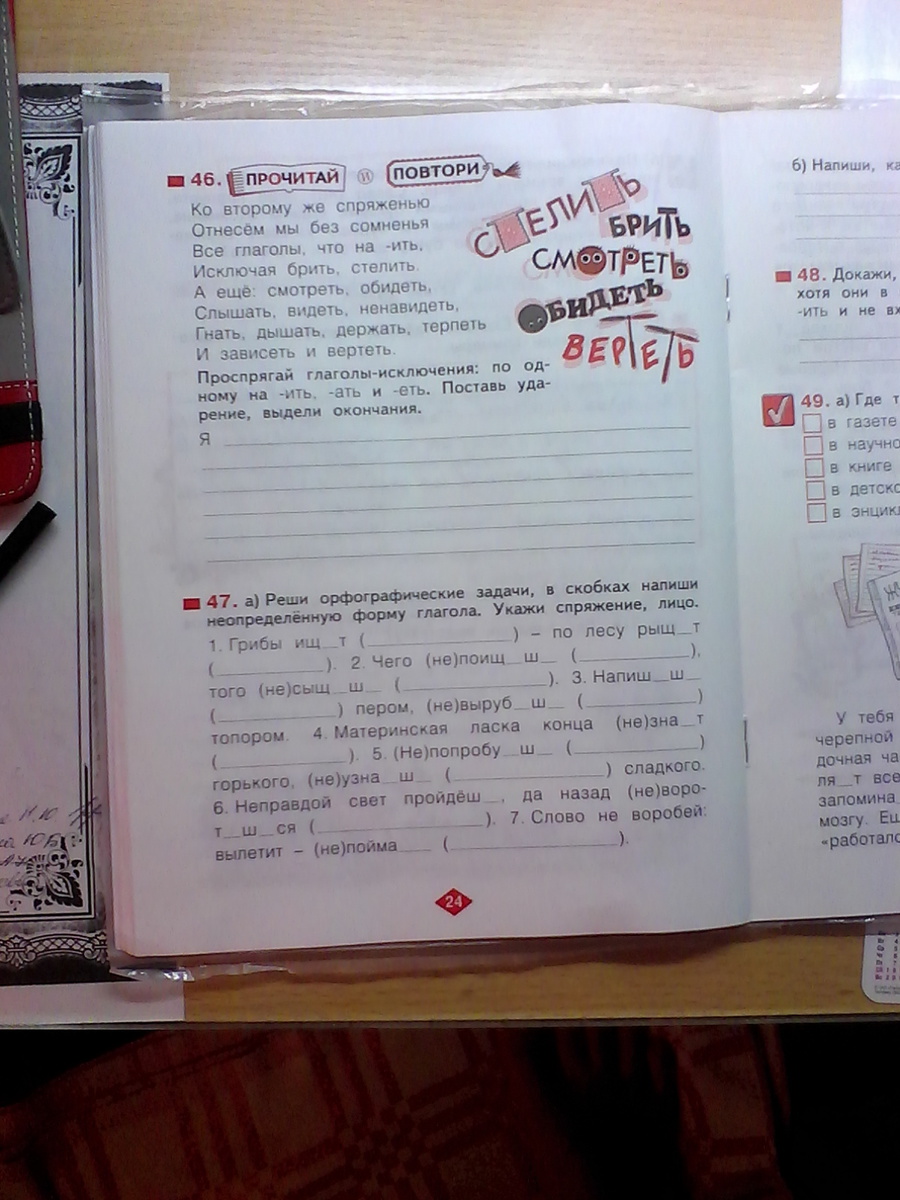 46. ПРОЧИТАЙ и ПОВТОРИ
Ко второму же спряженью
Отнесём мы без сомненья
Все глаголы, что на -ить,
Исключая брить, стелить.
А ещё: смотреть, обидеть,
Слышать, видеть, ненавидеть,
Гнать, дышать, держать, терпеть
И зависеть и вертеть.
СТЕЛИТЬ
БРИТЬ
СМОТРЕТЬ
ОБИДЕТЬ
ВЕРТЕТЬ
Проспрягай глаголы-исключения: по од-
ному на -ить, -ать и -еть. Поставь уда-
рение, выдели окончания.
Я
47. а) Реши орфографические задачи, в скобках напиши
неопределённую форму глагола. Укажи спряжение, лицо.
1. Грибы ищ__т (____________) – по лесу рыщ__т
(__________). 2. Чего (не)поищ__ш__ (__________),
того (не)сыщ__ш__ (____________). 3. Напиш__ш__
(__________) пером, (не)выруб__ш__ (__________)
топором. 4. Материнская ласка конца (не)зна__т
(__________). 5. (Не)попробу__ш__ (__________)
горького, (не)узна__ш__ (____________) сладкого.
6. Неправдой свет пройдёш__, да назад (не)воро-
т__ш__ся (____________). 7. Слово не воробей:
вылетит – (не)пойма____ (____________).
24
б) Напиши,
48. Докажи,
хотя они в
-ить и не
49. а) Где
в газете
в
в книге
в
в
У тебя
черепной
дочная
ля__т все
запомина
мозгу.
«работал